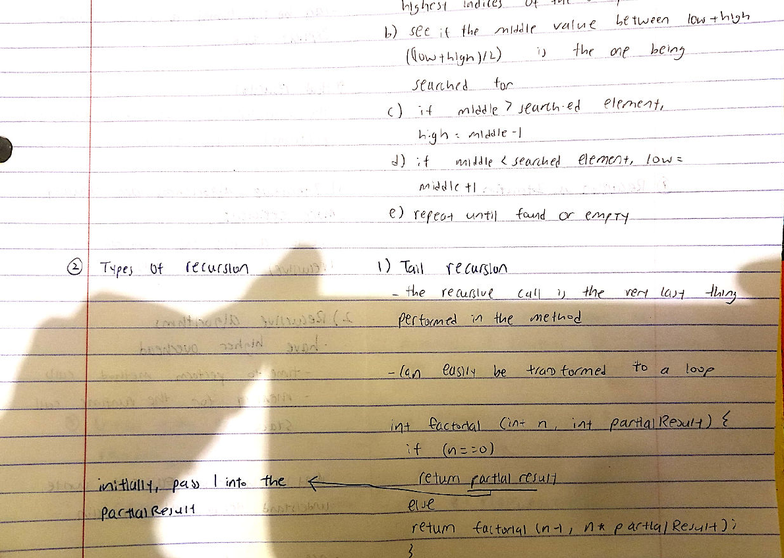 highest indices of the
b) see if the middle value between low + high
((low + high)/2) is the one being
searched for
c) if middle > searched element,
high = middle - 1
d) if middle < searched element, low =
middle + 1
e) repeat until found or empty
② Types of recursion
1) Tail recursion
- the recursive call is the very last thing
performed in the method
- can easily be transformed to a loop
int factorial (int n, int partialResult) {
if (n==0)
return partial result
initially, pass 1 into the
partialResult
else
return factorial (n-1, n* partialResult);
}